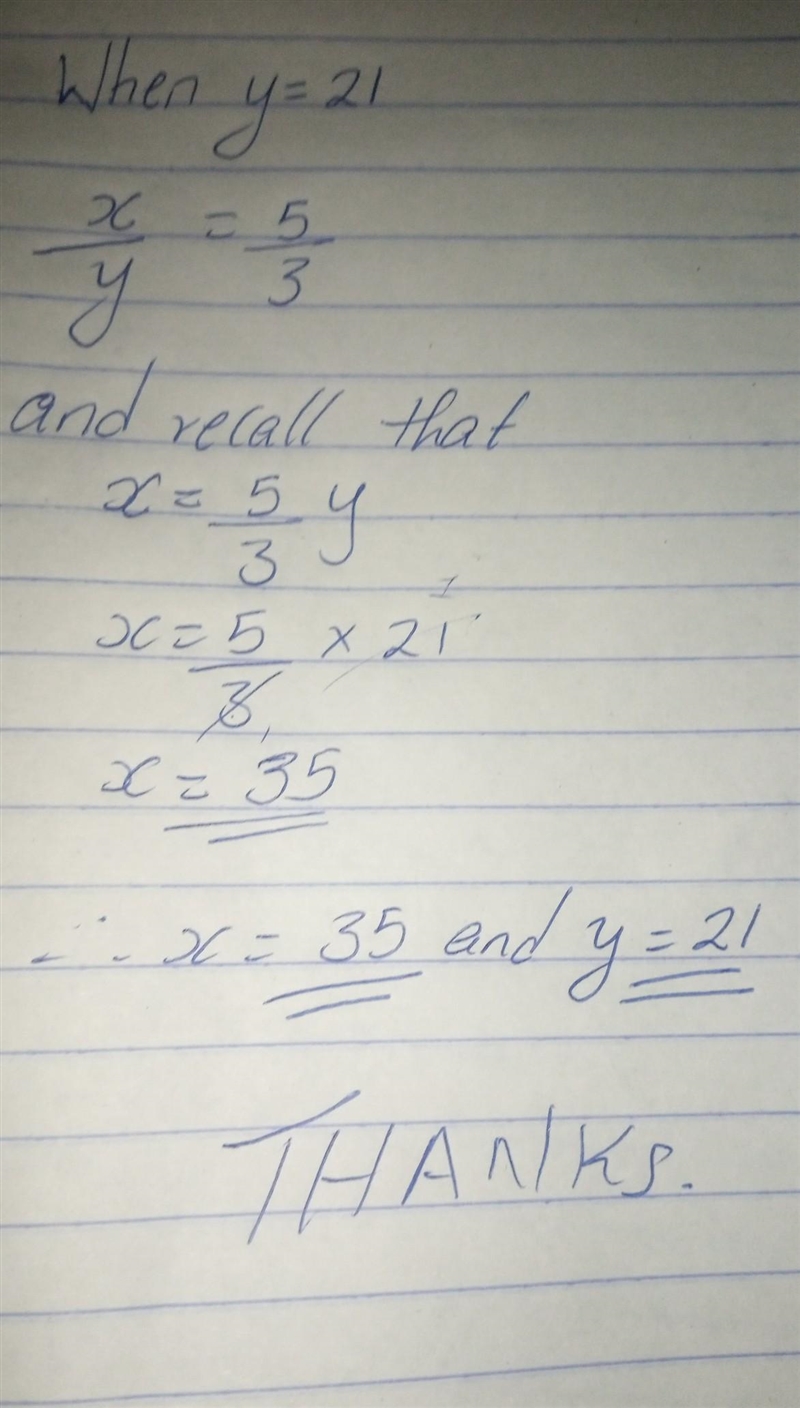 When y = 21
x/y = 5/3
and recall that
x = 5/3 y
x = 5/3 × 21
x = 35
∴ x = 35 and y = 21
THANKS.